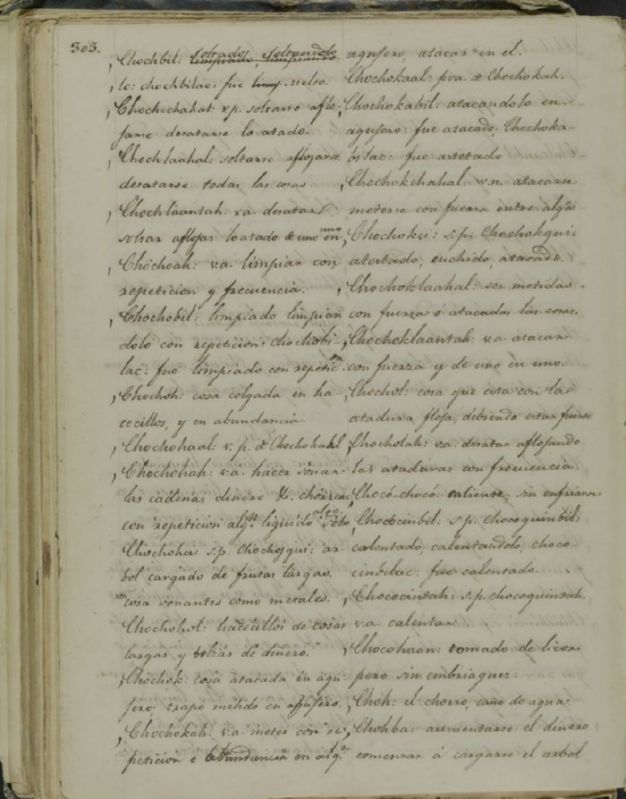 303.
Chochbil: soltado, soltandolo
lo: chochbilac: fue suelto.
Chochochahal: v.p. soltarse aflo-
jarse desatarse lo atado.
Chochlaahal: soltarse aflojarse
desatarse todas las cosas
Chochlaantah: v.a. desatar
soltar aflojar lo atado de uno en uno
Chochoah: v.a. limpiar con
repeticion y frecuencia.
Chochobil: limpiado limpian
dolo con repeticion: chochobi
lac: fue limpiado con repeticon
Chochoh: cosa colgada en ha
cecillos, y en abundancia
Chochohaal: v.p. de Chochohah
Chochohah: v.a. hacer sonar
las cadenas dinero &c. chorrear
con repeticion algn liquido
Chochohci s.p. Chochojqui: ar
bol cargado de frutas largas
cosa sonantes como metales.
Chochohol: hacecillos de cosas
largas y bolsas de dinero.
Chochok: cosa atacada en agu
jero: trapo metido en agujero.
Chochokah: v.a. meter con re
peticion ó abundancia en algn
agujero, atacar en el.
Chochokaal: pva. de Chochokah.
Chochokabil: atacandolo en
agujero: fue atacado. Chochoka-
bilac: fue
Chochokchahal: v.n. atacarse
meterse con fuerza entre algo
Chochokci: s.p. Chochokqui:
atestado, enchido, atacado.
Chochoklaahal: ser metidas
con fuerza ó atacadas las cosas
Chochoklaantah: v.a. atacar
con fuerza y de uno en uno.
Chochol: cosa que esta con la
atadura floja, debiendo estar fuerte
Chocholah: va: desatar aflojando
las ataduras con frecuencia
Chocó-chocó: caliente, sin enfriarse
Chococinbil: s.p. chocoquinbil:
calentado, calentandolo, choco
cinbilac: fue calentado.
Chococintah: s.p. chocoquintah
v.a. calentar
Chocohaan: tomado de licor
pero sin embriaguez
Choh: el chorro, caño de agua
Chohba: aumentarse el dinero
comenzar á cargarse el arbol